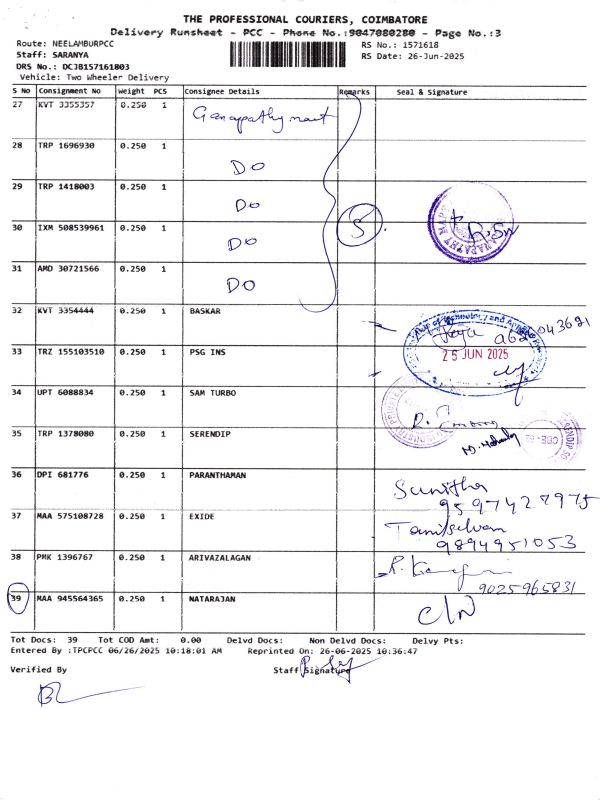 THE PROFESSIONAL COURIERS, COIMBATORE
Delivery Runsheet - PCC - Phone No.:9047080280 - Page No.:3
Route: NEELAMBURPCC RS No.: 1571618
Staff: SARANYA RS Date: 26-Jun-2025
DRS No.: DCJB157161803
Vehicle: Two Wheeler Delivery
S No Consignment No Weight PCS Consignee Details Remarks Seal & Signature
27 KVT 3355357 0.250 1 Ganapathy
28 TRP 1696930 0.250 1 DO
29 TRP 1418003 0.250 1 DO
30 IXM 508539961 0.250 1 DO
31 AMD 30721566 0.250 1 DO
5
32 KVT 3354444 0.250 1 BASKAR
33 TRZ 155103510 0.250 1 PSG INS
25 JUN 2025
34 UPT 6088834 0.250 1 SAM TURBO
35 TRP 1378080 0.250 1 SERENDIP
36 DPI 681776 0.250 1 PARANTHAMAN Sunitha
9597427975
37 MAA 575108728 0.250 1 EXIDE Tamilselvam
9894951053
38 PMK 1396767 0.250 1 ARIVAZALAGAN
9025965831
39 MAA 945564365 0.250 1 NATARAJAN C/N
Tot Docs: 39 Tot COD Amt: 0.00 Delvd Docs: Non Delvd Docs: Delvy Pts:
Entered By :TPCPCC 06/26/2025 10:18:01 AM Reprinted On: 26-06-2025 10:36:47
Verified By Staff Signature